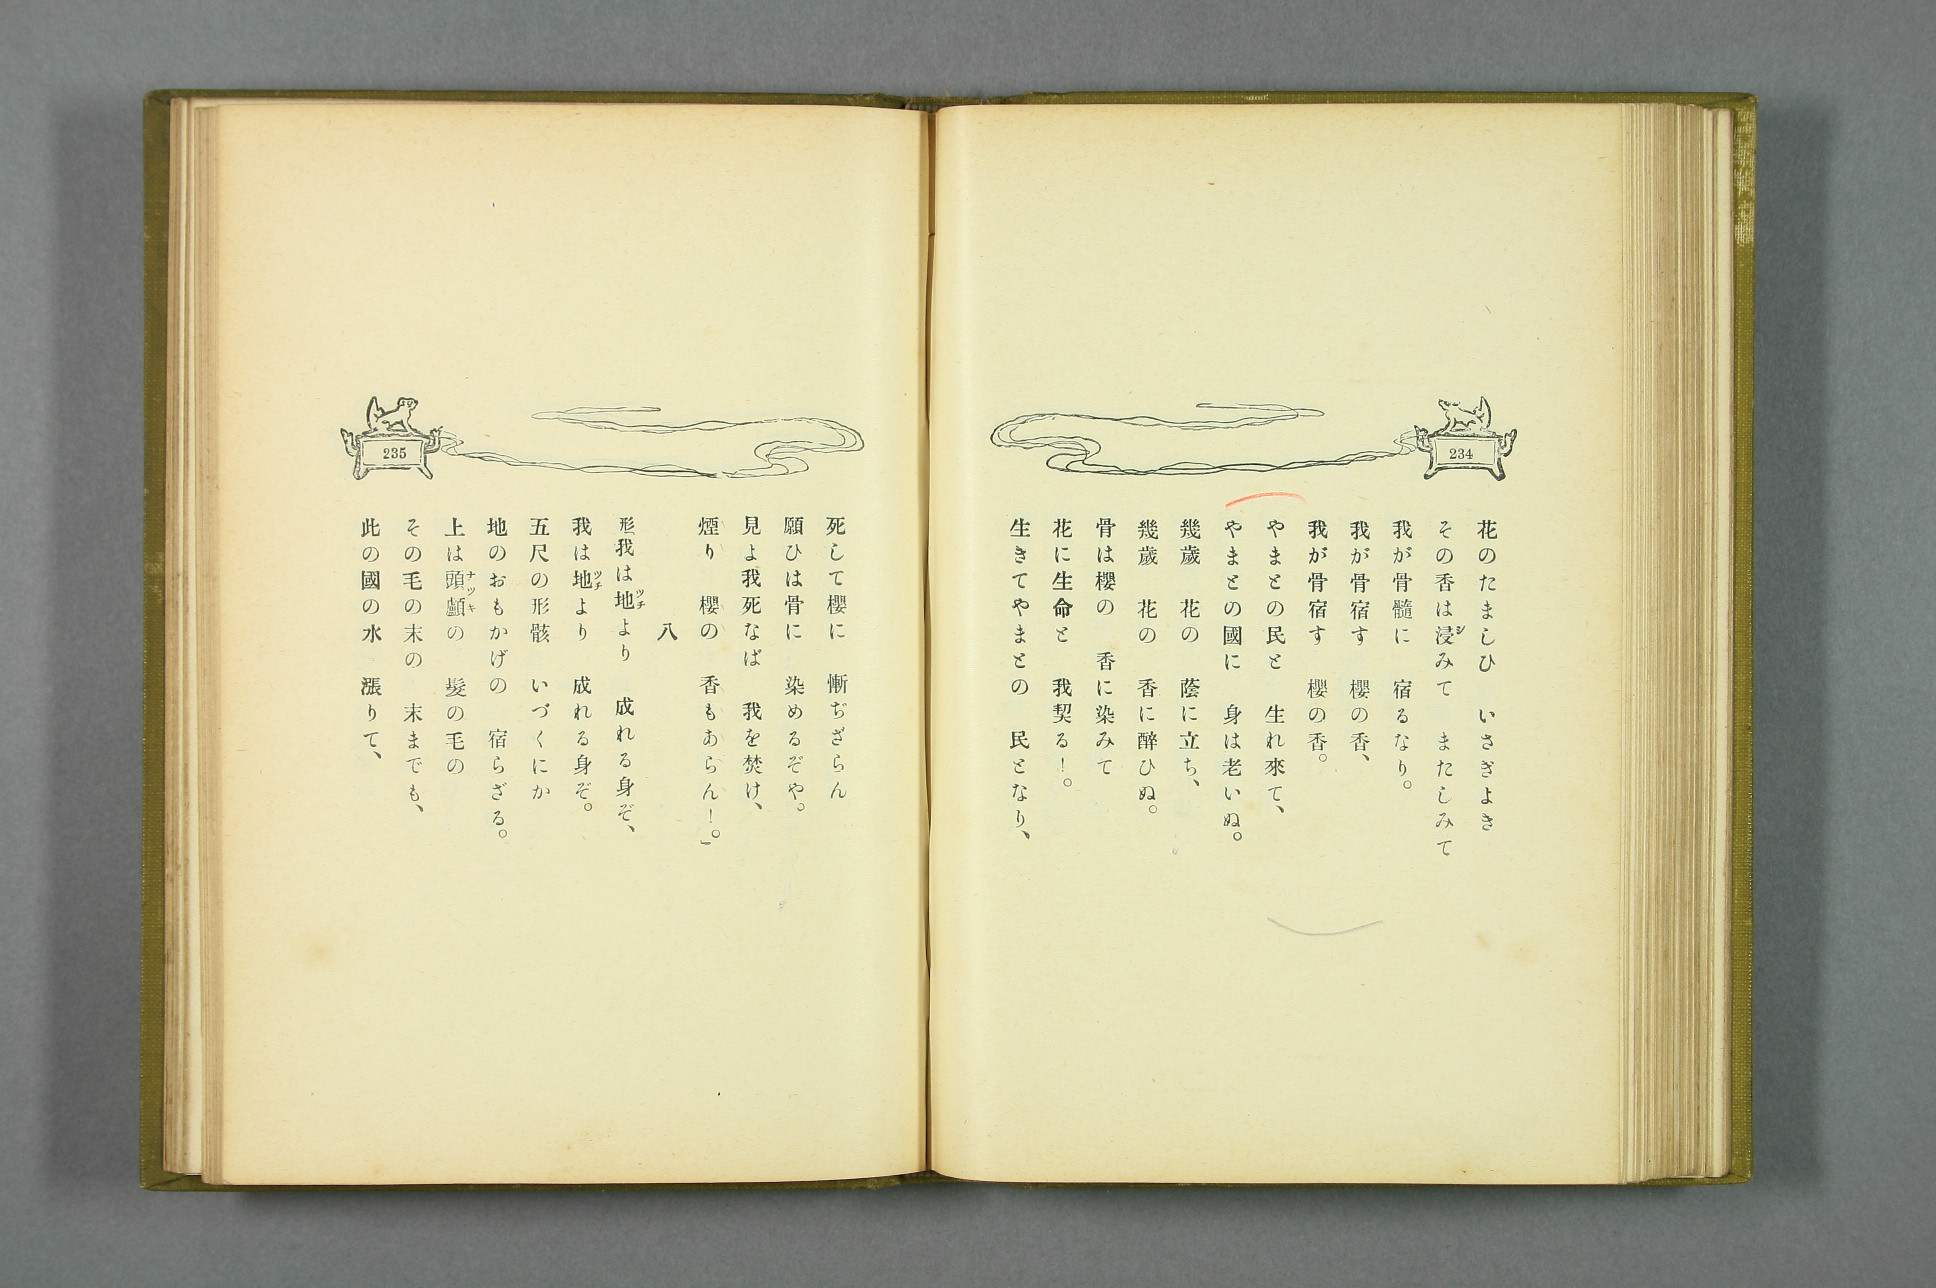 234
花のたましひ　いさぎよき
その香は浸みて　またしみて
我が骨髓に　宿るなり。
我が骨宿す　櫻の香、
我が骨宿す　櫻の香。
やまとの民と　生れ來て、
やまとの國に　身は老いぬ。
幾歳　花の　蔭に立ち、
幾歳　花の　香に醉ひぬ。
骨は櫻の　香に染みて
花に生命と　我契る！。
生きてやまとの　民となり、
235
死して櫻に　慚ぢざらん
願ひは骨に　染めるぞや。
見よ我死なば　我を焚け、
煙り　櫻の　香もあらん！。」
八
形我は地より　成れる身ぞ、
我は地より　成れる身ぞ。
五尺の形骸　いづくにか
地のおもかげの　宿らざる。
上は頭顱の　髮の毛の
その毛の末の　末までも、
此の國の水　漲りて、